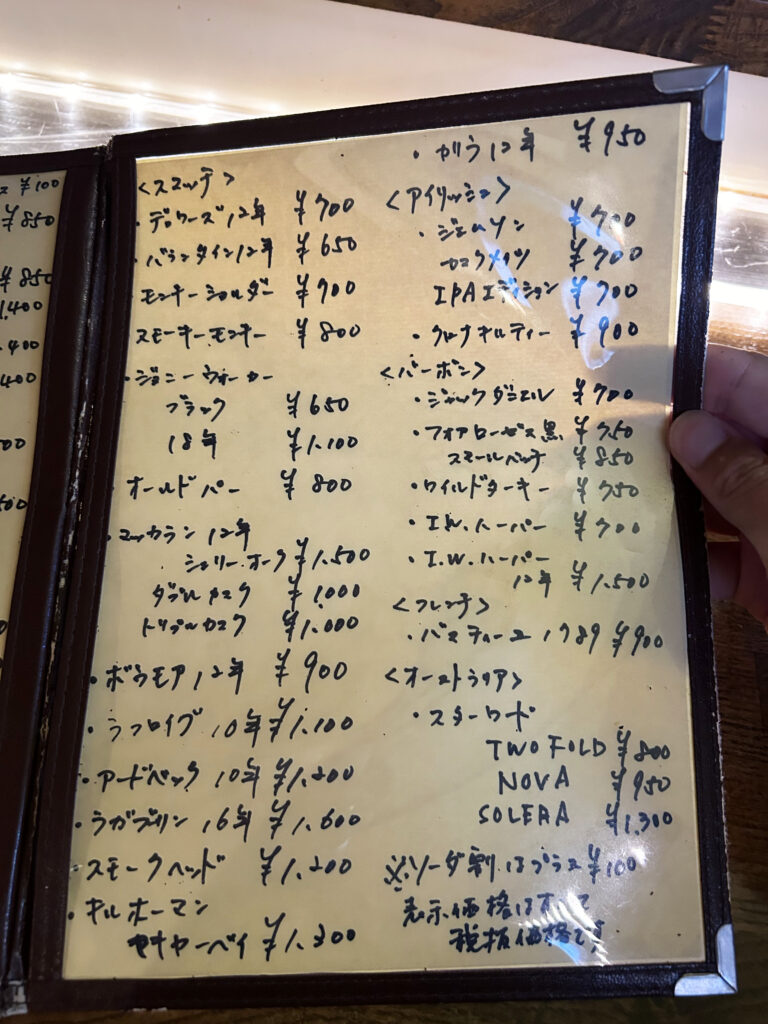 ス ¥100
¥850
¥850
1,400
400
400
00
500
<スコッチ>
・デュワーズ12年 ¥700
・バランタイン12年 ¥650
・モンキーショルダー ¥700
スモーキーモンキー ¥800
・ジョニーウォーカー
ブラック ¥650
18年 ¥1,100
・オールドパー ¥800
・マッカラン12年
シェリーオーク ¥1,500
ダブルカスク ¥1,000
トリプルカスク ¥1,000
・ボウモア12年 ¥900
・ラフロイグ10年 ¥1,100
・アードベック10年 ¥1,200
・ラガブリン16年 ¥1,600
・スモークヘッド ¥1,200
・キルホーマン
マキヤーベイ ¥1,300
・カリラ12年 ¥950
<アイリッシュ>
・ジェムソン ¥700
カスクメイツ ¥700
IPAエディション ¥700
・クロナキルティー ¥900
<バーボン>
・ジャックダニエル ¥700
・フォアローゼス黒 ¥750
スモールバッチ ¥850
・ワイルドターキー ¥750
・I.W.ハーパー ¥700
・I.W.ハーパー
12年 ¥1,500
<フレンチ>
・バスティーユ1789 ¥900
<オーストラリア>
・スターワード
TWO FOLD ¥800
NOVA ¥950
SOLERA ¥1,300
※ソーダ割はプラス¥100
表示価格はすべて
税抜価格です